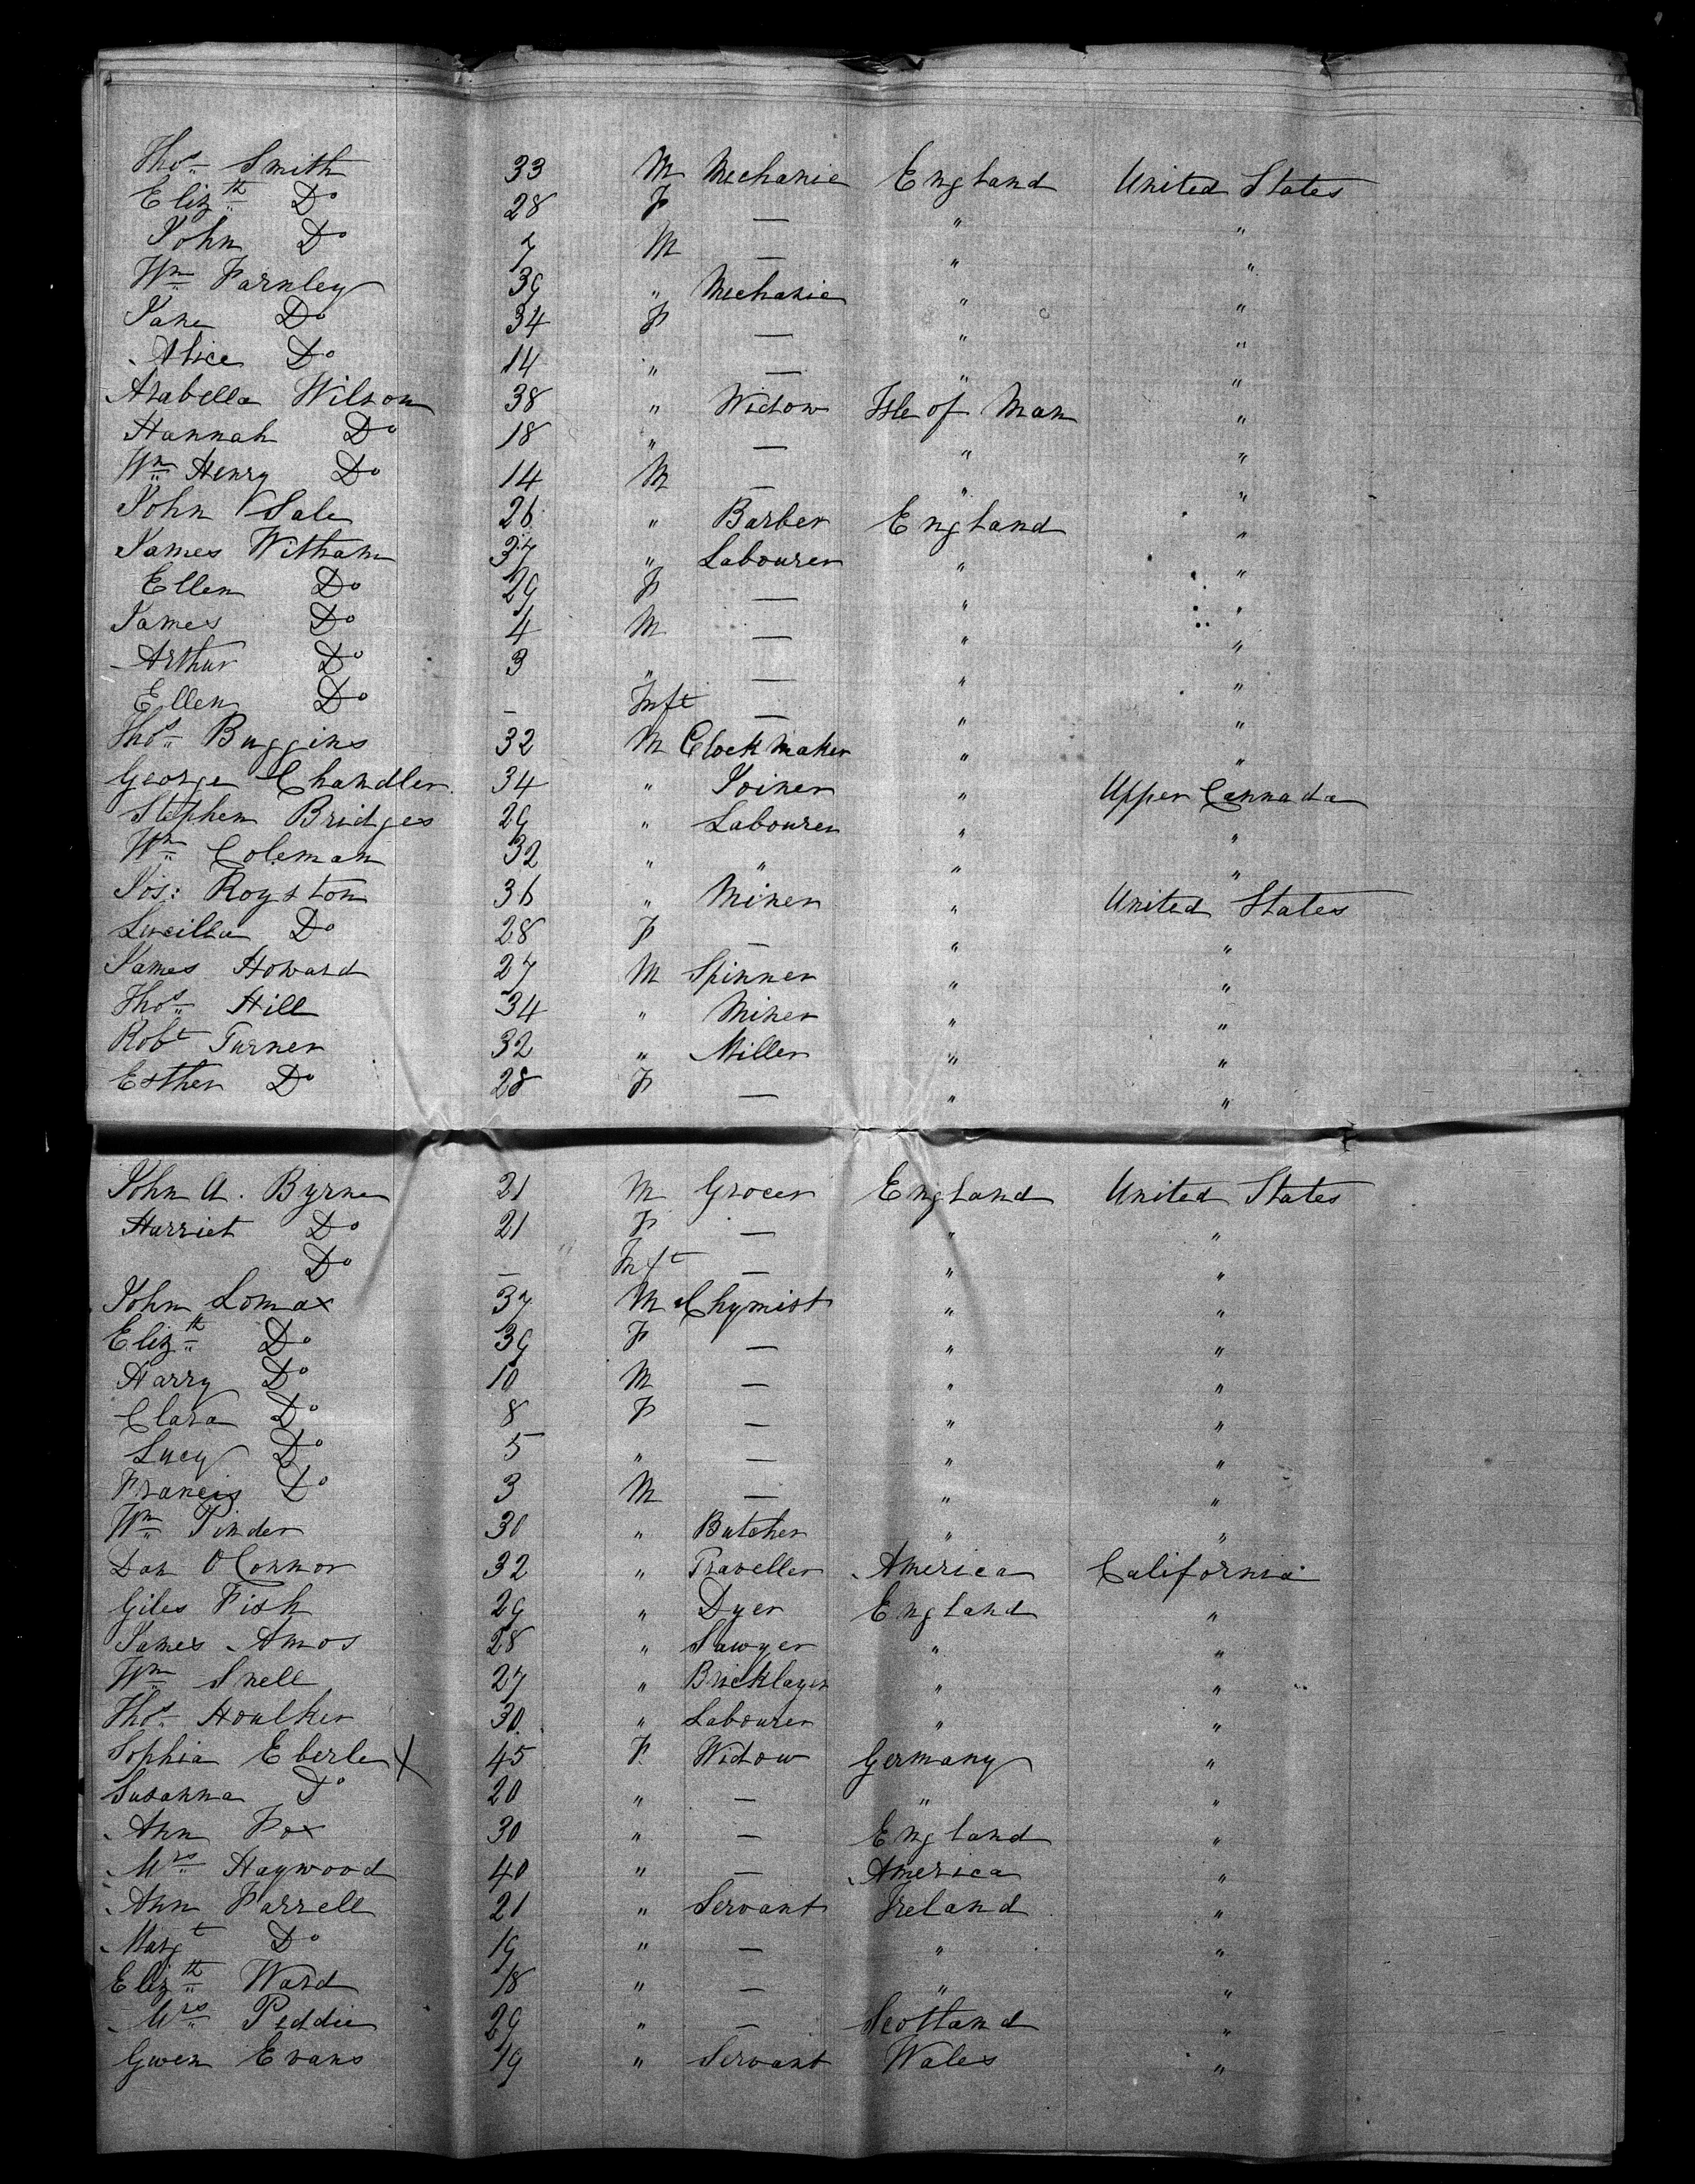 Thos Smith 33 M Mechanic England United States
Elizth Do 28 F — " "
John Do 7 M — " "
Wm Farnley 39 " Mechanic " "
Jane Do 34 F — " "
Alice Do 14 " — " "
Arabella Wilson 38 " Widow Isle of Man "
Hannah Do 18 " — " "
Wm Henry Do 14 M — " "
John Sale 26 " Barber England "
James Witham 37 " Labourer " "
Ellen Do 29 F — " "
James Do 4 M — " "
Arthur Do 3 " — " "
Ellen Do — Inft — " "
Thos Buggins 32 M Clock maker " "
George Chandler 34 " Joiner " Upper Cannada
Stephen Bridges 29 " Labourer " "
Wm Coleman 32 " " " "
Jos: Royston 36 " Miner " United States
Lucilla Do 28 F — " "
James Howard 27 M Spinner " "
Thos Hill 34 " Miner " "
Robt Turner 32 " Miller " "
Esther Do 28 F — " "
John A. Byrne 21 M Grocer England United States
Harriet Do 21 F — " "
Do — Inft — " "
John Lomax 37 M Chymist " "
Elizth Do 39 F — " "
Harry Do 10 M — " "
Clara Do 8 F — " "
Lucy Do 5 " — " "
Francis Do 3 M — " "
Wm Pinder 30 " Butcher " "
Dan O'Connor 32 " Traveller America California
Giles Fish 29 " Dyer England "
James Amos 28 " Sawyer " "
Wm Snell 27 " Bricklayer " "
Thos Houlker 30 " Labourer " "
Sophia Eberle X 45 F Widow Germany "
Susanna Do 20 " — " "
Ann Fox 30 " — England "
Mrs Haywood 40 " — America "
Ann Farrell 21 " Servant Ireland "
Margt Do 19 " — " "
Elizth Ward 18 " — " "
Mrs Peddie 29 " — Scotland "
Gwen Evans 19 " Servant Wales "